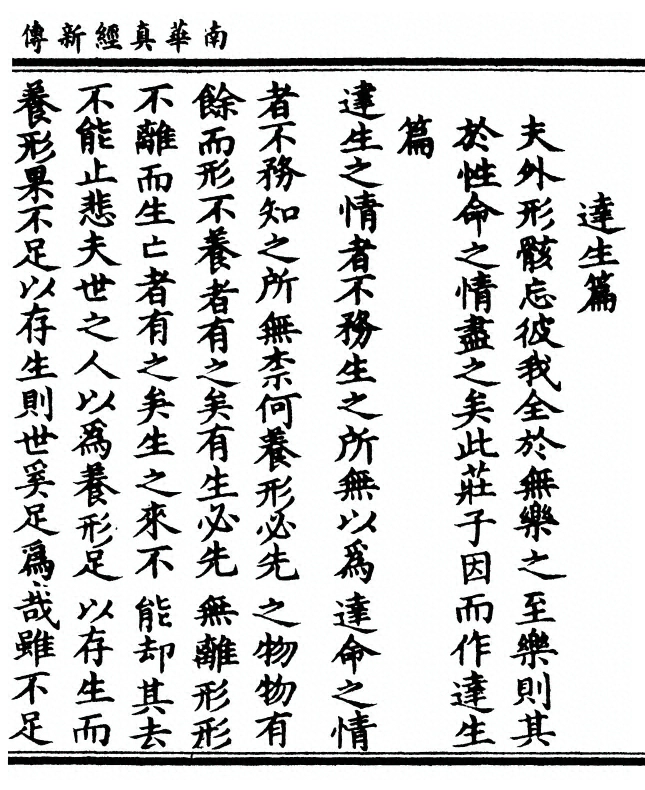 南華真經新傳
達生篇
夫外形骸忘彼我全於無樂之至樂則其
於性命之情盡之矣此莊子因而作達生
篇
達生之情者不務生之所無以為達命之情
者不務知之所無柰何養形必先之物物有
餘而形不養者有之矣有生必先無離形形
不離而生亡者有之矣生之來不能却其去
不能止悲夫世之人以為養形足以存生而
養形果不足以存生則世奚足為哉雖不足